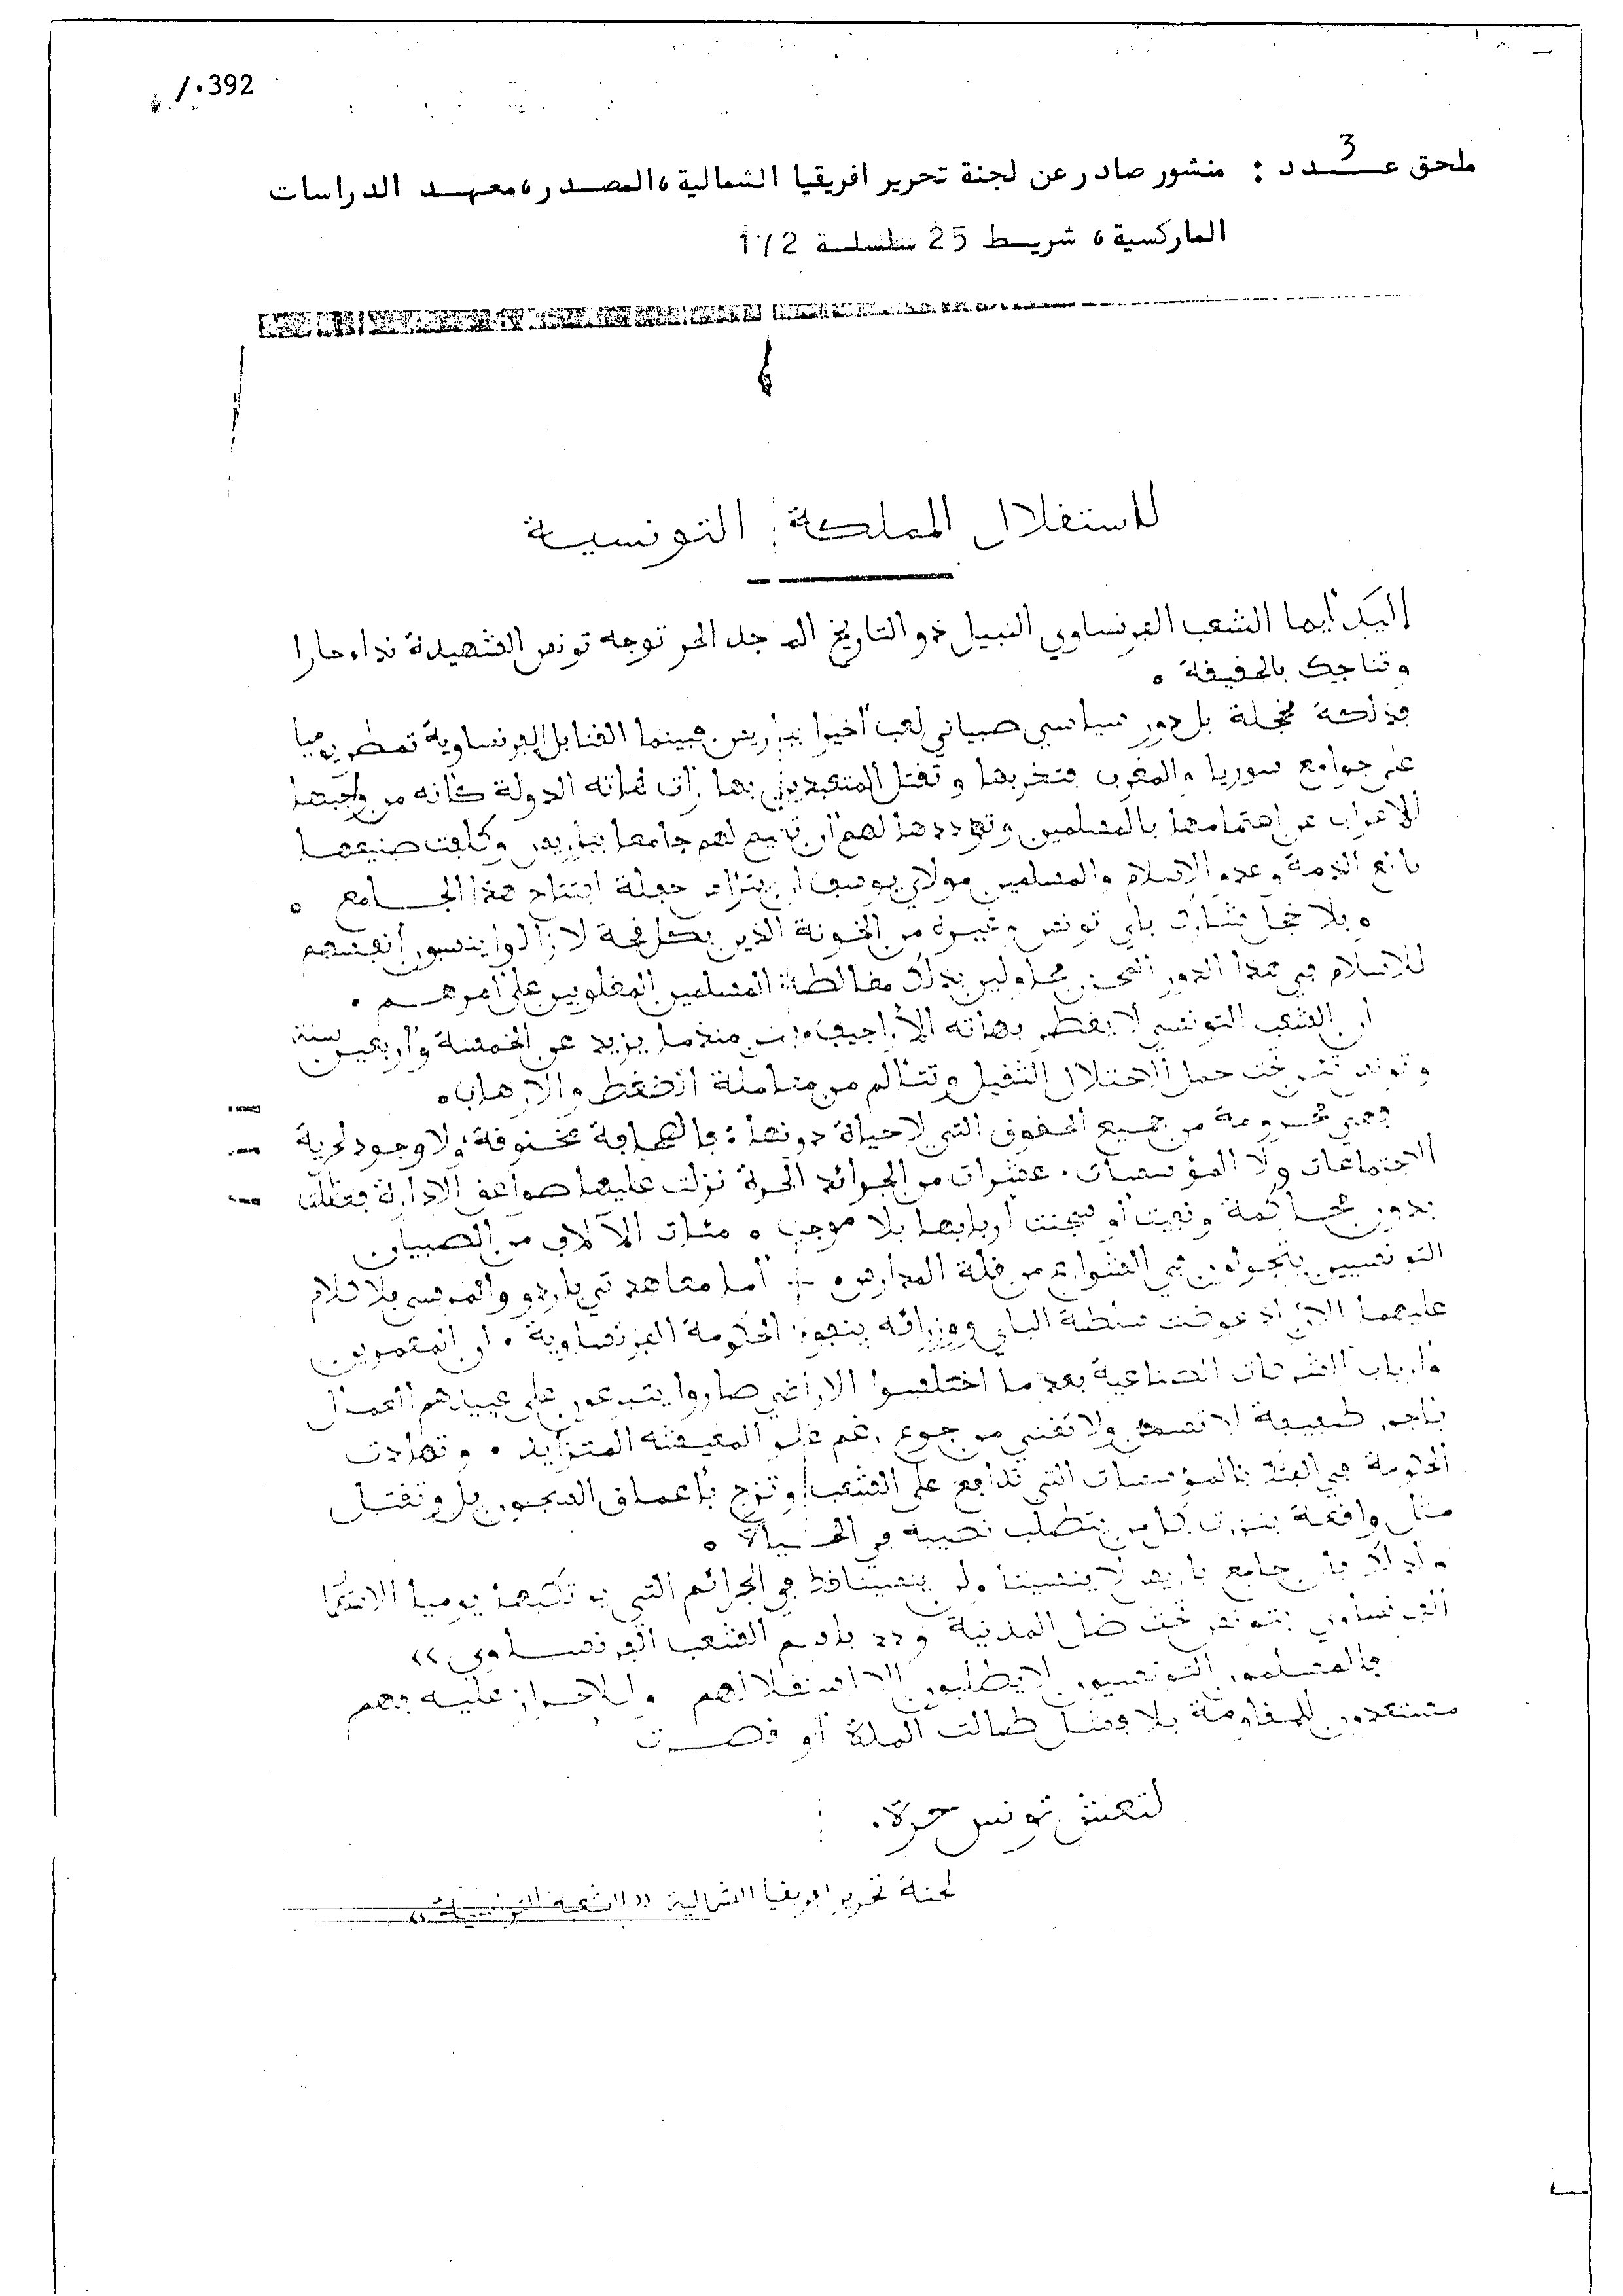 392٠/
3
ملحق عــدد : منشور صادر عن لجنة تحرير افريقيا الشمالية ، المصـدر ، معهـد الدراسات
الماركسية ، شريـط 25 سلسلـة 1/2
لاستقلال المملكة التونسية
إليك أيها الشعب الفرنساوي النبيل ذو التاريخ الحر توجه تونس الشهيدة نداء حارا
وتناجيك بالحقيقة .
مخجلة بل دور سياسي صبياني لعب أخيرا بباريس فبينما القنابل الفرنساوية تمطر يوميا
على جوامع سوريا والمغرب فتخربها وتقتل المتعبدين بها هاته الدولة كأنه من واجبها
الاعراب عن اهتمامها بالمسلمين وتوددها لهم أن تقيم لهم جامعا بباريس وكلفت صنيعها
بائع الذمة وعدو الاسلام والمسلمين مولاي يوسف أن حفلة افتتاح هذا الجــامع .
وبلا خجل باي تونس وغيره من الخونة الذين لا زالوا ينسبون أنفسهم
للاسلام في هذا الدور محاولين بذلك مغالطة المسلمين المغلوبين على أمرهــم .
أن الشعب التونسي لا بهاته الأراجيف منذ ما يزيد عن الخمسة وأربعين سنة
وتونس تحت حمل الاحتلال الثقيل وتتألم من معاملة الضغط والارهاب .
فهي محرومة من جميع الحقوق التي لا حياة دونها : فالصحافة مخنوقة ولا وجود لحرية
الاجتماعات ولا المؤسسات . عشرات من الجرائد الحرة نزلت عليها صواعق الادارة فعطلت
بدون محاكمة ونفيت أو سجنت أربابها بلا موجب . مئات الآلاف من الصبيان
التونسيين يتجولون في الشوارع من قلة المدارس . أما معاهد باردو والمرسى فلا كلام
عليهما الآن اذ عوضت سلطة الباي ووزرائه بنفوذ الحكومة الفرنساوية . ان المعمرين
وأرباب الشركات الصناعية بعدما اختلسوا الاراضي صاروا على العمال
بأجور طفيفة لا تسمن ولا تغني من جوع رغم غلو المعيشة المتزايد . وتمادت
الحكومة في بالمؤسسات التي تدافع على الشعب وتزج بأعماق السجون بل وتقتل
مثل واقعة بنزرت كل من يتطلب نصيبه في الحــياة .
جامع باريس لا ينسينا ولن ينسينا قط في الجرائم التي يرتكبها يوميا
الفرنساوي بتونس تحت ظل المدنية و " باسم الشعب الفرنســاوي "
فالمسلمون التونسيون لا يطلبون الا استقلالهم وللاحراز عليه فهم
مستعدون للمقاومة بلا فشل طالت المدة أو قصــرت
لتعش تونس حرة .
لجنة تحرير افريقيا الشمالية " الشعبة التونسية "